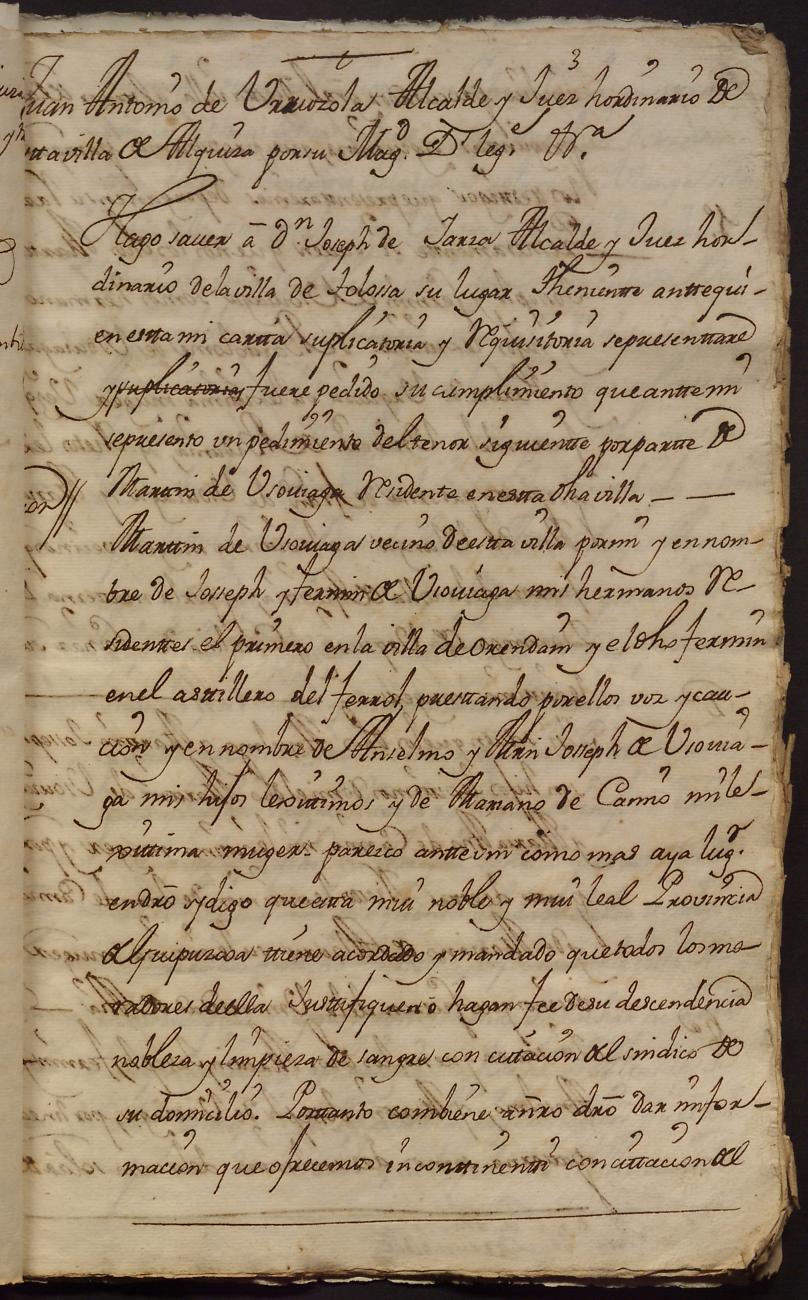 Juan Antonio de Urriozola Alcalde y Juez hordinario de
estta villa de Alquiza por su Mag.d D.s leg.e &.a
Hago saver â d.n Joseph de Jarza Alcalde y Juez hor-
dinario de la villa de Tolossa su lugar Theniente antte qui-
en estta mi cartta suplicattoria y Requisitoria se presenttare
y suplicattoria, fuere pedido su cumplimiento que antte mi
se presento un pedimiento del tenor siguientte por partte de
Marttin de Usoviaga Residente en estta dha villa — —
Marttin de Usoviaga vecino de estta villa por mi y en nom-
bre de Josseph y fermin de Usoviaga mis hermanos Re-
sidenttes el primero en la villa de orendain y el dho fermin
en el asttillero del ferrol, presttando por ellos voz y cau-
cion y en nombre de Anselmo y Mrn Josseph de Usovia-
ga mis hijos lexittimos y de Mariano de Camio mi le-
xittima muger parezco antte vm como mas aya lug.r
en dro y digo que estta mui noble y mui leal Provincia
de Guipuzcoa ttiene acordado y mandado que todos los mo-
radores de ella Justtifiquen o hagan fee de su descendencia
nobleza y limpieza de sangre con cittacion del sindico de
su domicilio. Portanto combiene a nro dro dar infor-
macion que ofrecemos inconttinentti con cittacion del